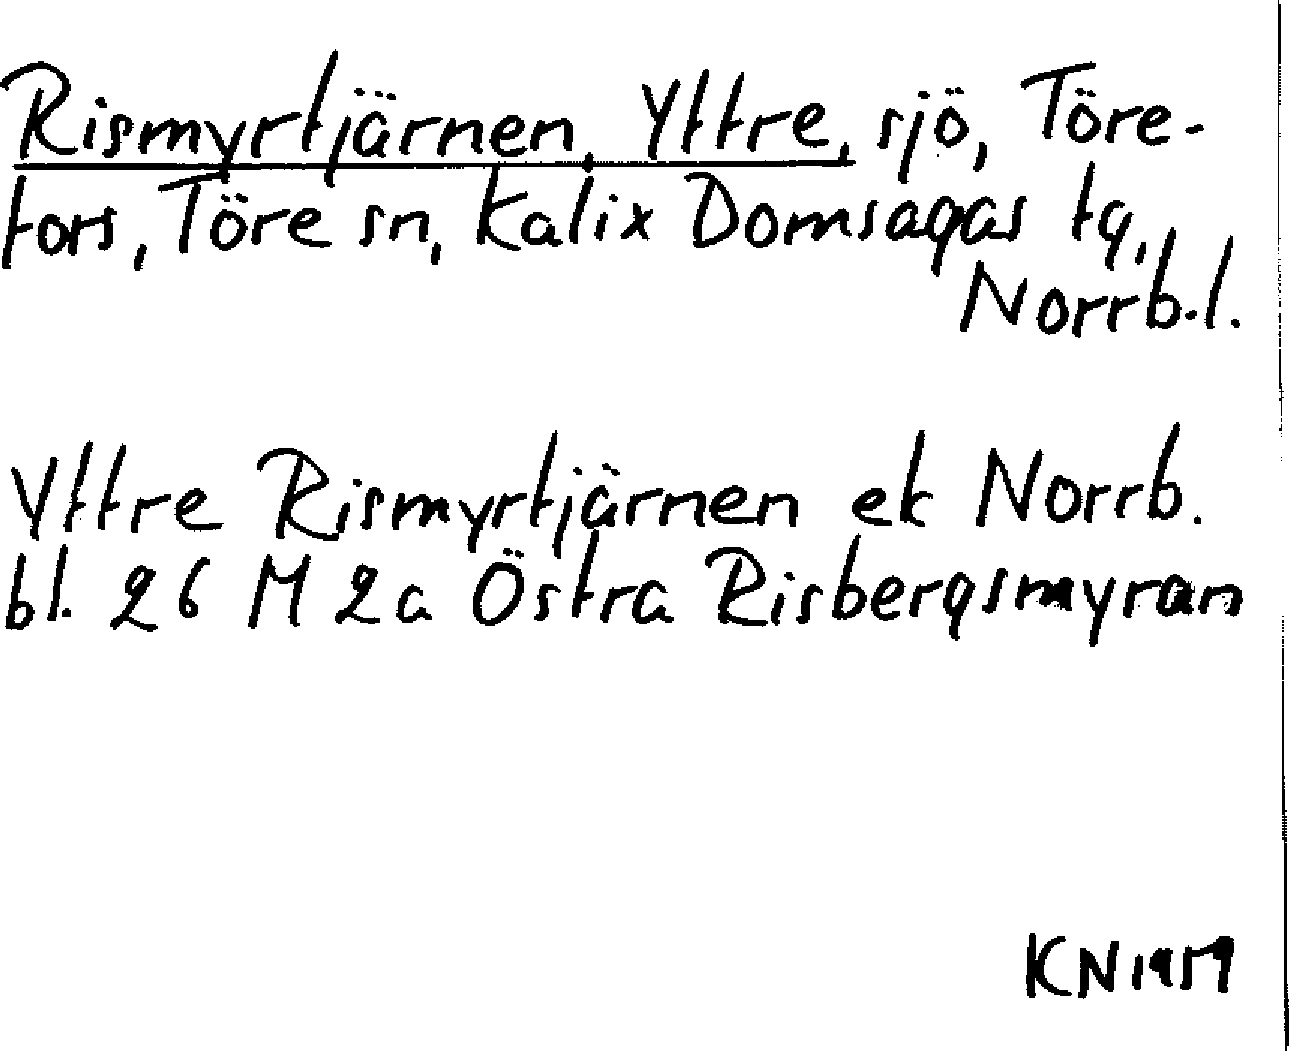 Rismyrtjärnen, Yttre, sjö, Töre-
fors, Töre sn, Kalix Domsagas tg,
Norrb.l.
Yttre Rismyrtjärnen ek Norrb.
bl. 26 M 2a Östra Risbergsmyran
KN 1959